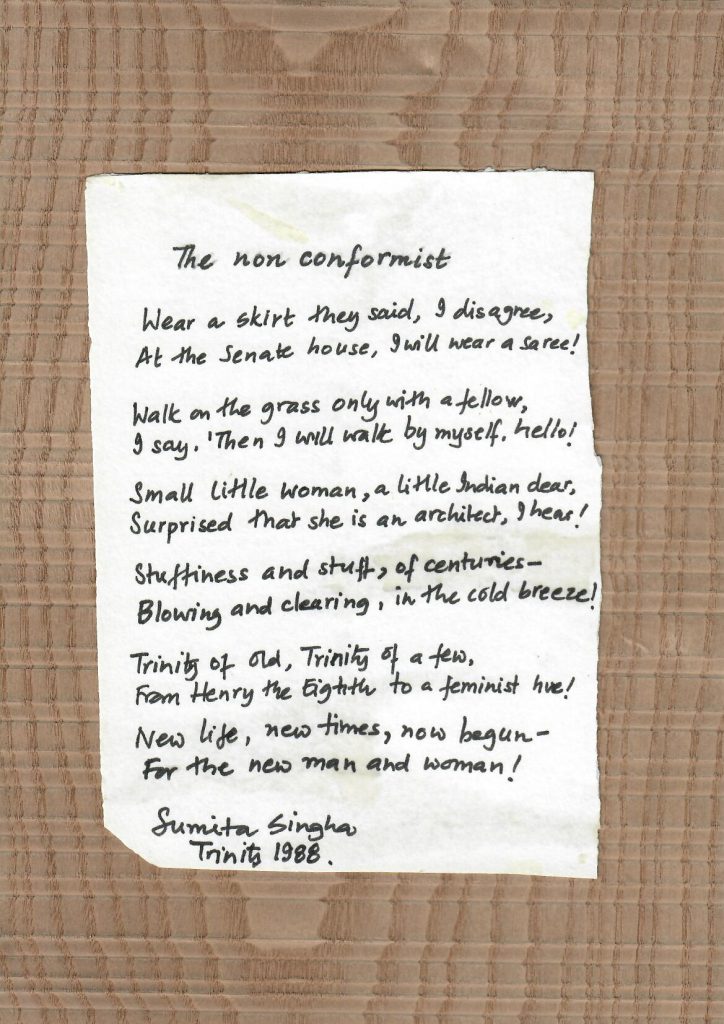 The non conformist
Wear a skirt they said, I disagree,
At the Senate house, I will wear a saree!
Walk on the grass only with a fellow,
I say. 'Then I will walk by myself. hello!
Small little woman, a little Indian dear,
Surprised that she is an architect, I hear!
Stuffiness and stuff, of centuries–
Blowing and clearing, in the cold breeze!
Trinity of old, Trinity of a few,
From Henry the Eighth to a feminist hue!
New life, new times, now begun–
For the new man and woman!
Sumita Singha
Trinity 1988.